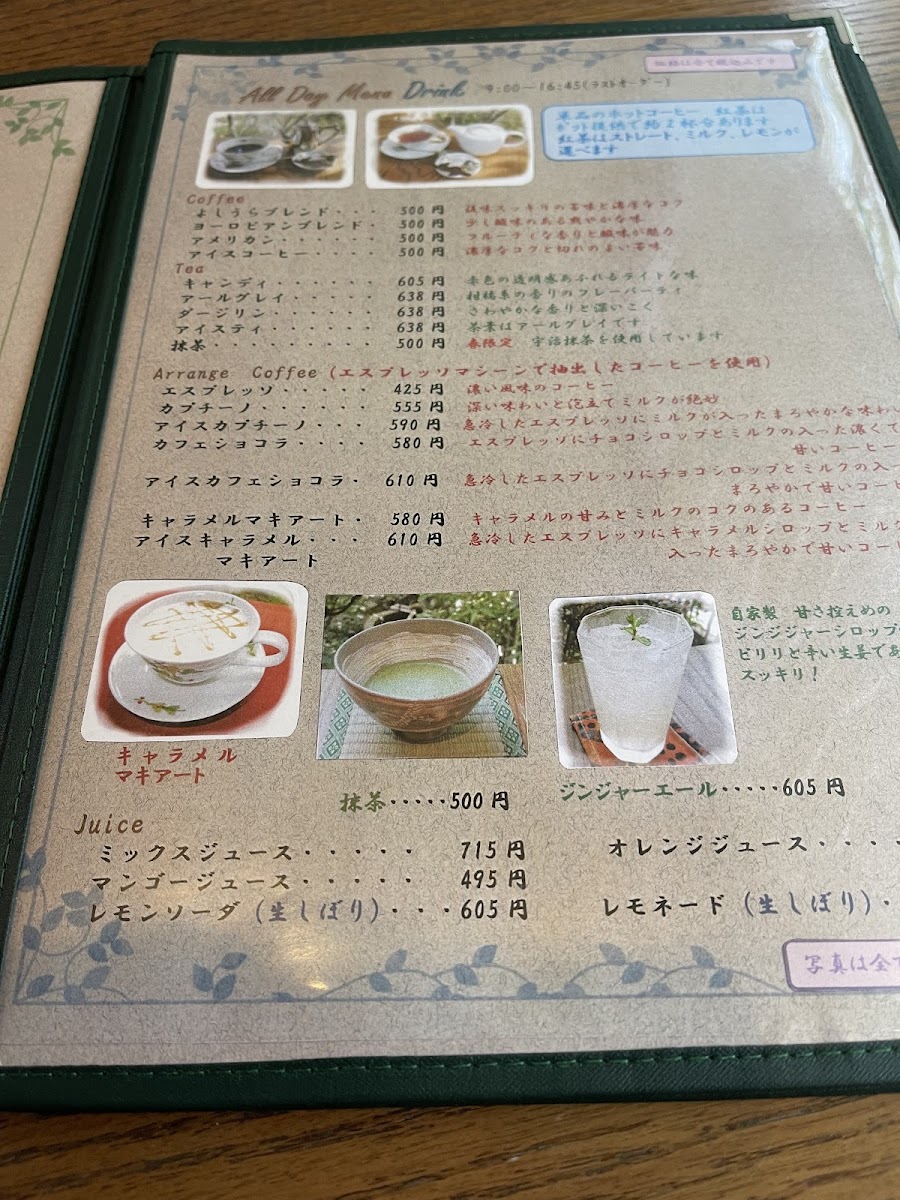 価格は全て税込みです
All Day Menu Drink 9:00～16:45(ラストオーダー)
単品のホットコーヒー 紅茶は
ポット提供で約2杯分あります
紅茶はストレート、ミルク、レモンが
選べます
Coffee
よしうらブレンド・・・ 500円 後味スッキリの苦味と濃厚なコク
ヨーロピアンブレンド・ 500円 少し酸味のある爽やかな味
アメリカン・・・・・・ 500円 フルーティな香りと酸味が魅力
アイスコーヒー・・・・ 500円 濃厚なコクと切れのよい苦味
Tea
キャンディ・・・・・・ 605円 赤色の透明感あふれるライトな味
アールグレイ・・・・・ 638円 柑橘系の香りのフレーバーティ
ダージリン・・・・・・ 638円 さわやかな香りと深いこく
アイスティ・・・・・・ 638円 茶葉はアールグレイです
抹茶・・・・・・・・・ 500円 春限定 宇治抹茶を使用しています
Arrange Coffee (エスプレッソマシーンで抽出したコーヒーを使用)
エスプレッソ・・・・・ 425円 濃い風味のコーヒー
カプチーノ・・・・・・ 555円 深い味わいと泡立てミルクが絶妙
アイスカプチーノ・・・ 590円 急冷したエスプレッソにミルクが入ったまろやかな味わい
カフェショコラ・・・・ 580円 エスプレッソにチョコシロップとミルクの入った濃くて
甘いコーヒー
アイスカフェショコラ・ 610円 急冷したエスプレッソにチョコシロップとミルクの入っ
まろやかで甘いコーヒ
キャラメルマキアート・ 580円 キャラメルの甘みとミルクのコクのあるコーヒー
アイスキャラメル・・・ 610円 急冷したエスプレッソにキャラメルシロップとミルク
マキアート 入ったまろやかで甘いコーヒ
自家製 甘さ控えめの
ジンジャーシロップ
ピリリと辛い生姜であ
スッキリ！
キャラメル
マキアート
抹茶・・・・・500円
ジンジャーエール・・・・・605円
Juice
ミックスジュース・・・・・ 715円 オレンジジュース・・・・
マンゴージュース・・・・・ 495円
レモンソーダ(生しぼり)・・・605円 レモネード(生しぼり)・
写真は全て